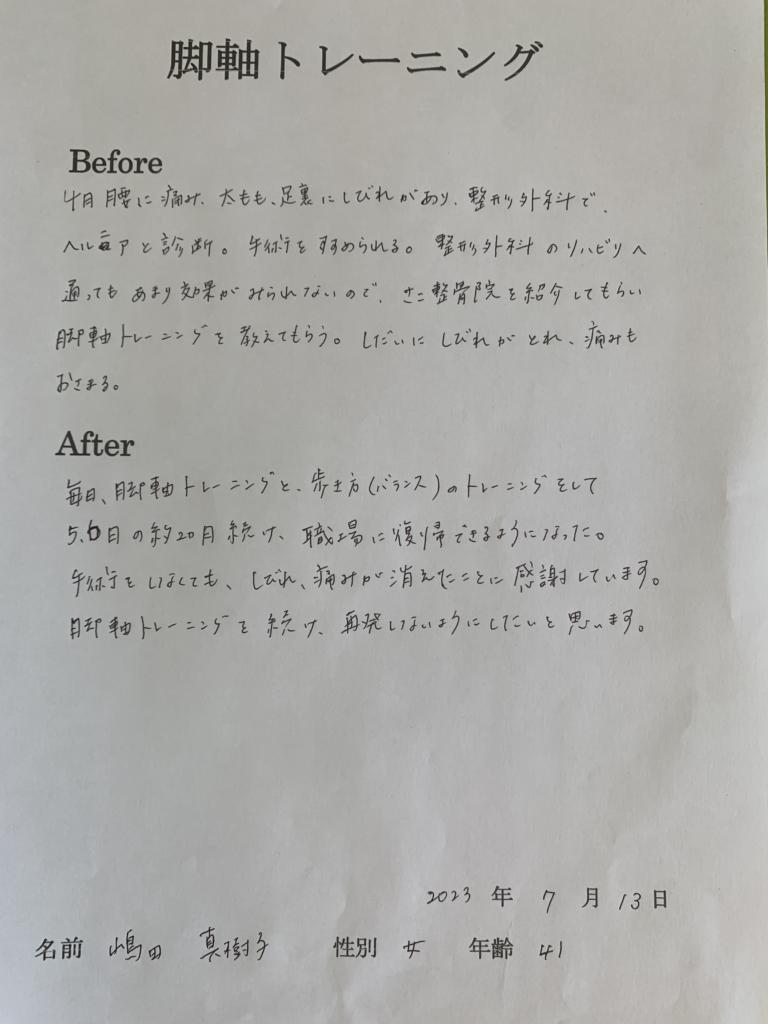 脚軸トレーニング
Before
4月 腰に痛み、太もも、足裏にしびれがあり、整形外科で、
ヘルニアと診断。手術をすすめられる。整形外科のリハビリへ
通っても あまり効果がみられないので、さこ整骨院を紹介してもらい
脚軸トレーニングを教えてもらう。しだいにしびれがとれ、痛みも
おさまる。
After
毎日、脚軸トレーニングと、歩き方(バランス)のトレーニングをして
5,6日の約2ヶ月続け、職場に復帰できるようになった。
手術をしなくても、しびれ、痛みが消えたことに感謝しています。
脚軸トレーニングを続け、再発しないようにしたいと思います。
2023 年 7 月 13 日
名前 嶋田 真樹子 性別 女 年齢 41